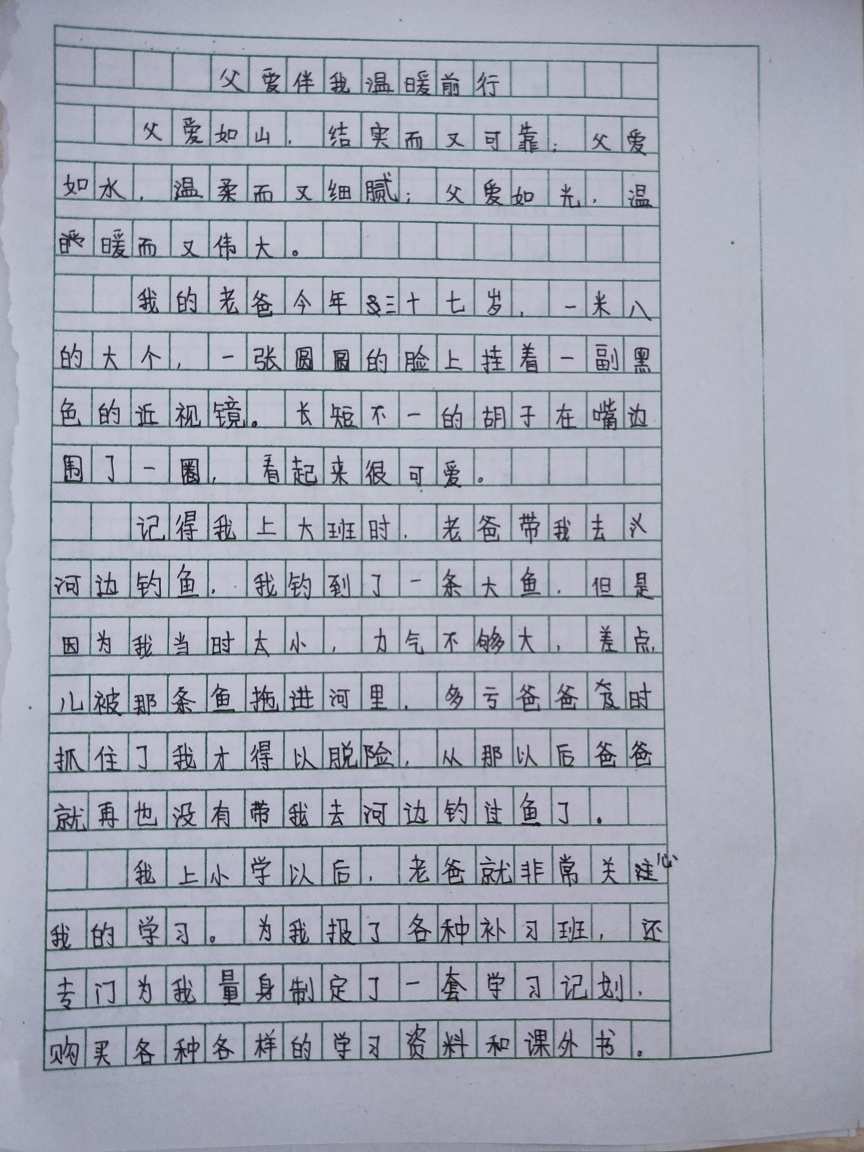 父爱伴我温暖前行
父爱如山，结实而又可靠；父爱
如水，温柔而又细腻；父爱如光，温
暖而又伟大。
我的老爸今年三十七岁，一米八
的大个，一张圆圆的脸上挂着一副黑
色的近视镜。长短不一的胡子在嘴边
围了一圈，看起来很可爱。
记得我上大班时，老爸带我去
河边钓鱼，我钓到了一条大鱼，但是
因为我当时太小，力气不够大，差点
儿被那条鱼拖进河里，多亏爸爸及时
抓住了我才得以脱险，从那以后爸爸
就再也没有带我去河边钓过鱼了。
我上小学以后，老爸就非常关心
我的学习。为我报了各种补习班，还
专门为我量身制定了一套学习记划，
购买各种各样的学习资料和课外书。